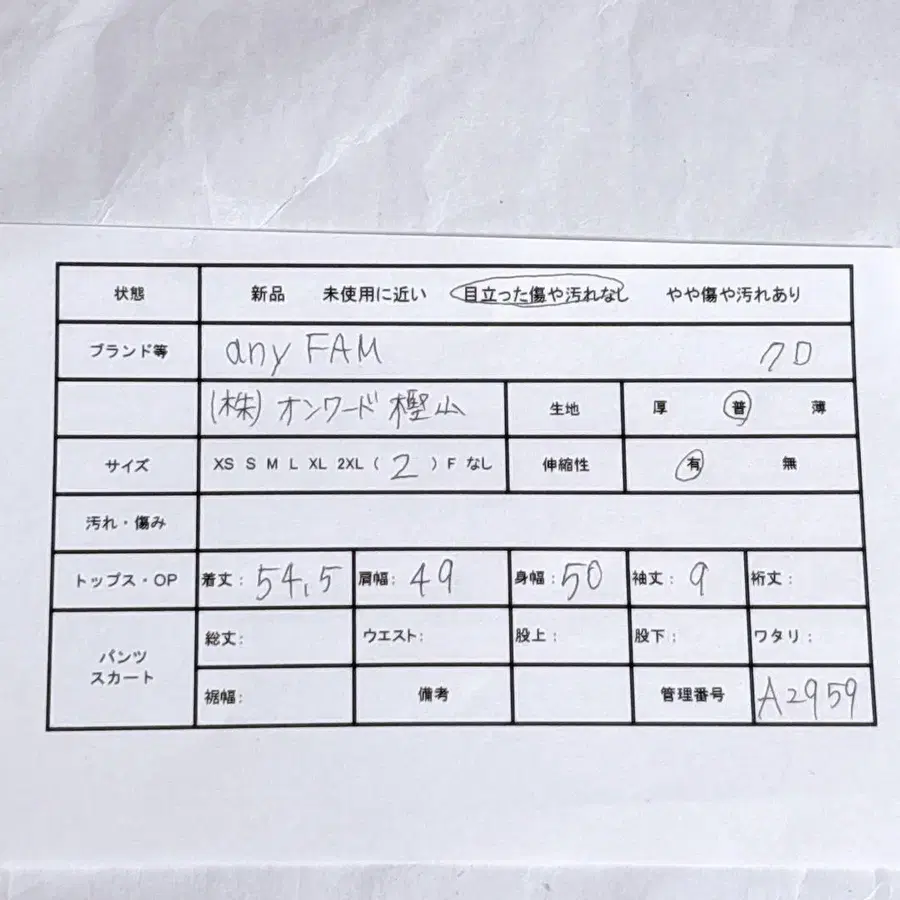 状態 新品 未使用に近い 目立った傷や汚れなし やや傷や汚れあり
ブランド等 any FAM クロ
(株)オンワード樫山 生地 厚 普 薄
サイズ XS S M L XL 2XL ( 2 ) F なし 伸縮性 有 無
汚れ・傷み
トップス・OP 着丈: 54.5 肩幅: 49 身幅: 50 袖丈: 9 裄丈:
パンツ スカート 総丈: ウエスト: 股上: 股下: ワタリ:
裾幅: 備考 管理番号 A2959